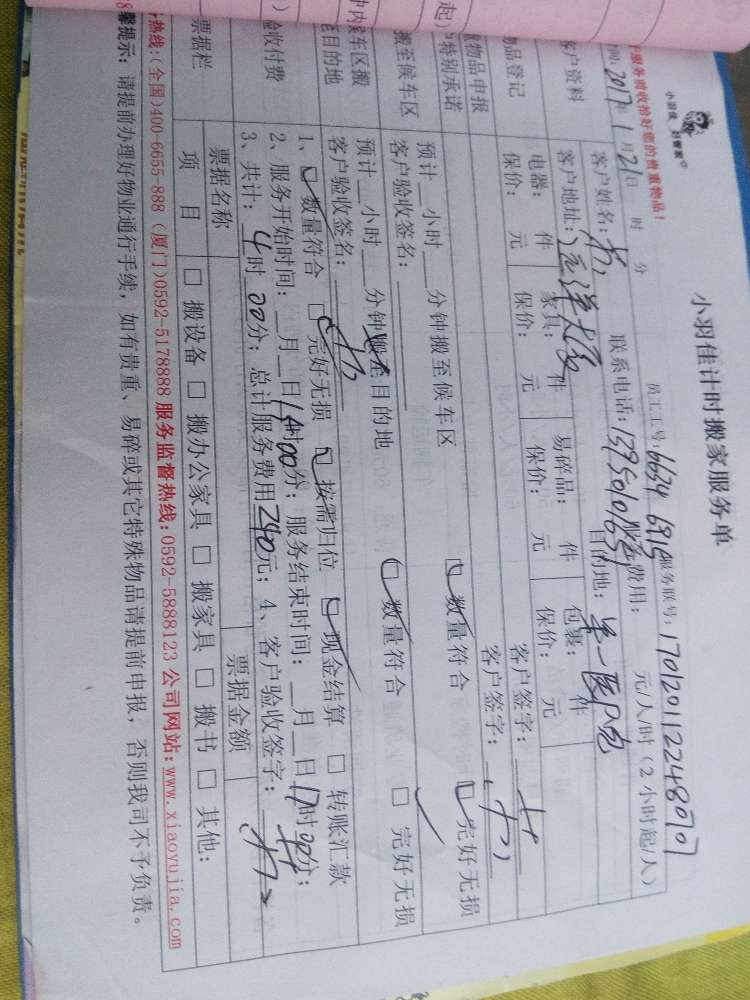 小羽佳计时搬家服务单
小羽佳 好管家
员工工号:6634 6915 服务联号:17012011224807
服务前收拾好您的贵重物品!
2017年1月21日 时 分
服务费用: 元/人/时(2小时起/人)
客户资料
客户姓名: 联系电话:
客户地址: 目的地:
物品登记
电器: 件 家具: 件 易碎品: 件 包裹: 件
保价: 元 保价: 元 保价: 元 保价: 元
物品申报
特别承诺
客户签字:
客户签字:
搬至候车区
预计 小时 分钟搬至候车区 数量符合 完好无损
客户验收签名:
候车区搬
至目的地
预计 小时 分钟搬至目的地 数量符合 完好无损
客户验收签名:
验收付费
1、 数量符合 完好无损 按需归位 现金结算 转账汇款
2、服务开始时间: 月 日 时00分;服务结束时间: 月 日17时 分;
3、共计:4时00分;总计服务费用240元;4、客户验收签字:
票据栏
票据名称 票据金额
项 目 搬设备 搬办公家具 搬家具 搬书 其他:
热线:(全国)400-6655-888 (厦门)0592-5178888 服务监督热线:0592-5888123 公司网站:www.xiaoyujia.com
馨提示:请提前办理好物业通行手续,如有贵重、易碎或其它特殊物品请提前申报,否则我司不予负责。